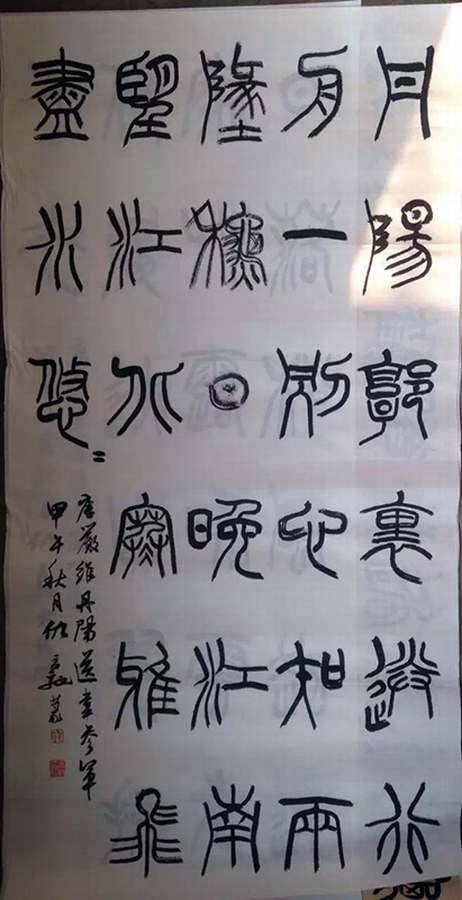 丹陽郭裏送行
舟一別心知兩
地秋日晚江南
望江北寒雅飛
盡水悠〻
唐嚴維丹陽送韋參軍
甲午秋月